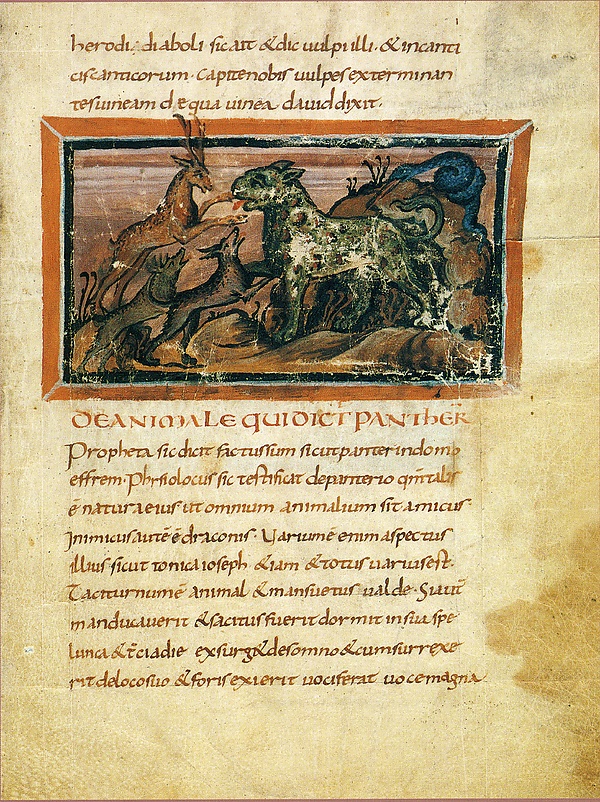 herodi, diaboli sic ait & dic vulpi illi. & incanti
ciscanticorum. Capite nobis vulpes exterminan
tes vineam de qua vinea david dixit.
DE ANIMALE QUI DICT PANTHER
Propheta sic dicit factus sum sicut panter in domo
effrem. Phisiologus sic testificat de panterio qm talis
ē natura eius ut omnium animalium sit amicus.
Inimicus autē ē draconis. Variumē enim aspectus
illius sicut tonica ioseph & iam & totus varius est.
Taciturnumē animal & mansuetus valde. Si aut
manducaverit & saciatus fuerit dormit in sua spe
lunca & tciadie exsurg& de somno & cum surrexe
rit de loco suo & foris exierit vociferat voce magna